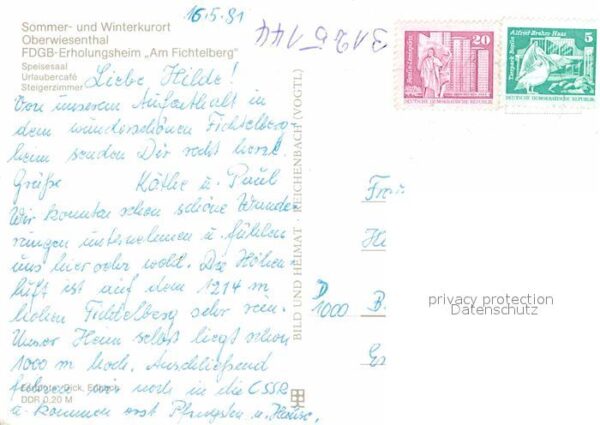 16.5.81
Sommer- und Winterkurort
Oberwiesenthal
FDGB-Erholungsheim „Am Fichtelberg"
Speisesaal
Urlaubercafé
Steigerzimmer
Liebe Hilde!
Von unserem Aufenthalt in
dem wunderschönen Fichtelberg-
heim senden Dir recht herzl.
Grüße Käthe u. Paul
Wir konnten schon schöne Wande-
rungen unternehmen u. fühlen
uns hier sehr wohl. Die Höhen-
luft ist auf dem 1214 m
hohen Fichtelberg sehr rein.
Unser Heim selbst liegt schon
1000 m hoch. Anschließend
fahren wir noch in die CSSR
u. kommen erst Pfingsten n. Hause.
DDR 0,20 M
BILD UND HEIMAT · REICHENBACH (VOGTL)
20
DEUTSCHE DEMOKRATISCHE REPUBLIK
Alfred-Brehm-Haus
5
Tierpark Berlin
DEUTSCHE DEMOKRATISCHE REPUBLIK
D
1000 B
privacy protection
Datenschutz